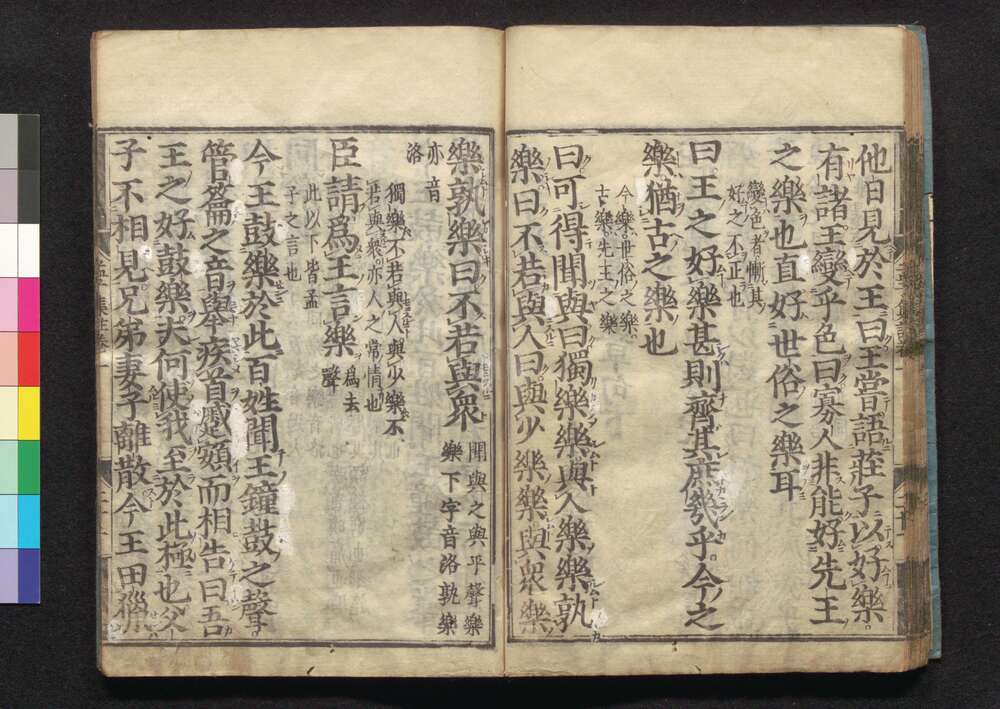 他日見於王曰王嘗語莊子以好樂
有諸王變乎色曰寡人非能好先王
之樂也直好世俗之樂耳
變色者慚其
好之不正也
曰王之好樂甚則齊其庶幾乎今之
樂猶古之樂也
今樂世俗之樂
古樂先王之樂
曰可得聞與曰獨樂樂與人樂樂孰
樂曰不若與人曰與少樂樂與衆樂
樂孰樂曰不若與衆
聞與之與平聲樂
樂下字音洛孰樂
亦音
洛
獨樂不若與人與少樂不
若與衆亦人之常情也
臣請爲王言樂
爲去
聲
此以下皆孟
子之言也
今王鼓樂於此百姓聞王鐘鼓之聲
管籥之音舉疾首蹙頞而相告曰吾
王之好鼓樂夫何使我至於此極也父
子不相見兄弟妻子離散今王田獵